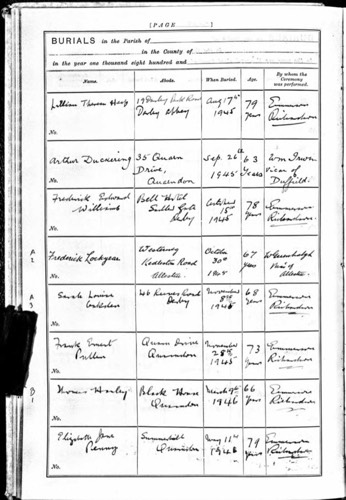 [PAGE ]
BURIALS in the Parish of
in the County of
in the year one thousand eight hundred and
Name. Abode. When Buried. Age. By whom the Ceremony was performed.
William Thomas 19 Darley Park Road Aug 17th 79 Emerson
Darley Abbey 1945 years Richardson
No.
Arthur Duckering 35 Quarn Sep. 26th 63 Wm Irwin
Drive, 1945 Years Vicar of
Quarndon Duffield
No.
Frederick Edward Bell Hotel October 78 Emerson
Williams Sadler Gate 15th years Richardson
Derby 1945
No.
A 2
Frederick Lockyear Westway October 67
Kedleston Road 30th years Vicar of
Allestree 1945 Allestree
No.
A 3
Sarah Louisa 46 Road November 68 Emerson
Derby 8th Years Richardson
1945
No.
Frank Ernest Quarn Drive November 73 Emerson
Quarndon 28th Years Richardson
1945
No.
B 1
Thomas Black House March 9th 66 Emerson
Quarndon 1946 Years Richardson
No.
Elizabeth Jane Summerhill May 11th 79 Emerson
Penny Quarndon 1946 Years Richardson
No.